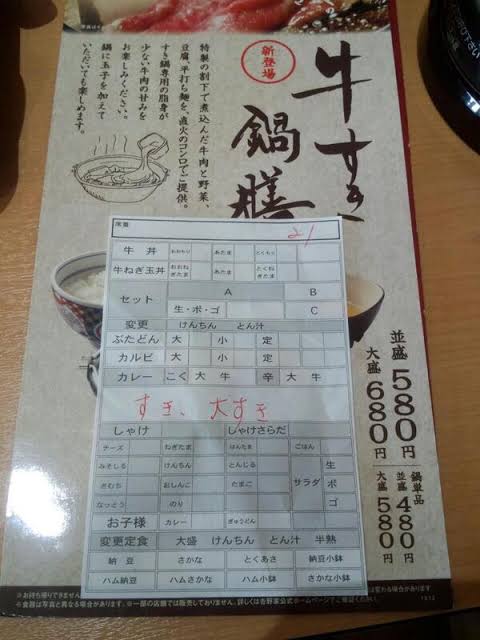 新登場
牛すき
鍋膳
特製の割下で煮込んだ牛肉と野菜、
豆腐、平打ち麺を、直火のコンロでご提供。
すき鍋専用の脂身が
少ない牛肉の甘みを
お楽しみください。
鍋に玉子を加えて
いただいても楽しめます。
並盛 580円
大盛 680円
鍋単品
並盛 480円
大盛 580円
席番 21
牛丼 おおもり あたま とくもり
牛ねぎ玉丼 おおねぎたま あたま とくねぎたま
セット A B
生・ポ・ゴ C
変更 けんちん とん汁
ぶたどん 大 小 定
カルビ 大 小 定
カレー こく 大 牛 辛 大 牛
すき、大すき
しゃけ しゃけさらだ
チーズ ねぎたま はんたま ごはん
みそしる けんちん とんじる サラダ 生
きむち おしんこ たまご ポ
なっとう のり ゴ
お子様 カレー ぎゅうどん
変更定食 大盛 けんちん とん汁 半熟
納豆 さかな とくあさ 納豆小鉢
ハム納豆 ハムさかな ハム小鉢 さかな小鉢
※食器は写真と異なる場合があります。※一部の店舗では販売しておりません。詳しくは吉野家公式ホームページでご確認ください。
1312